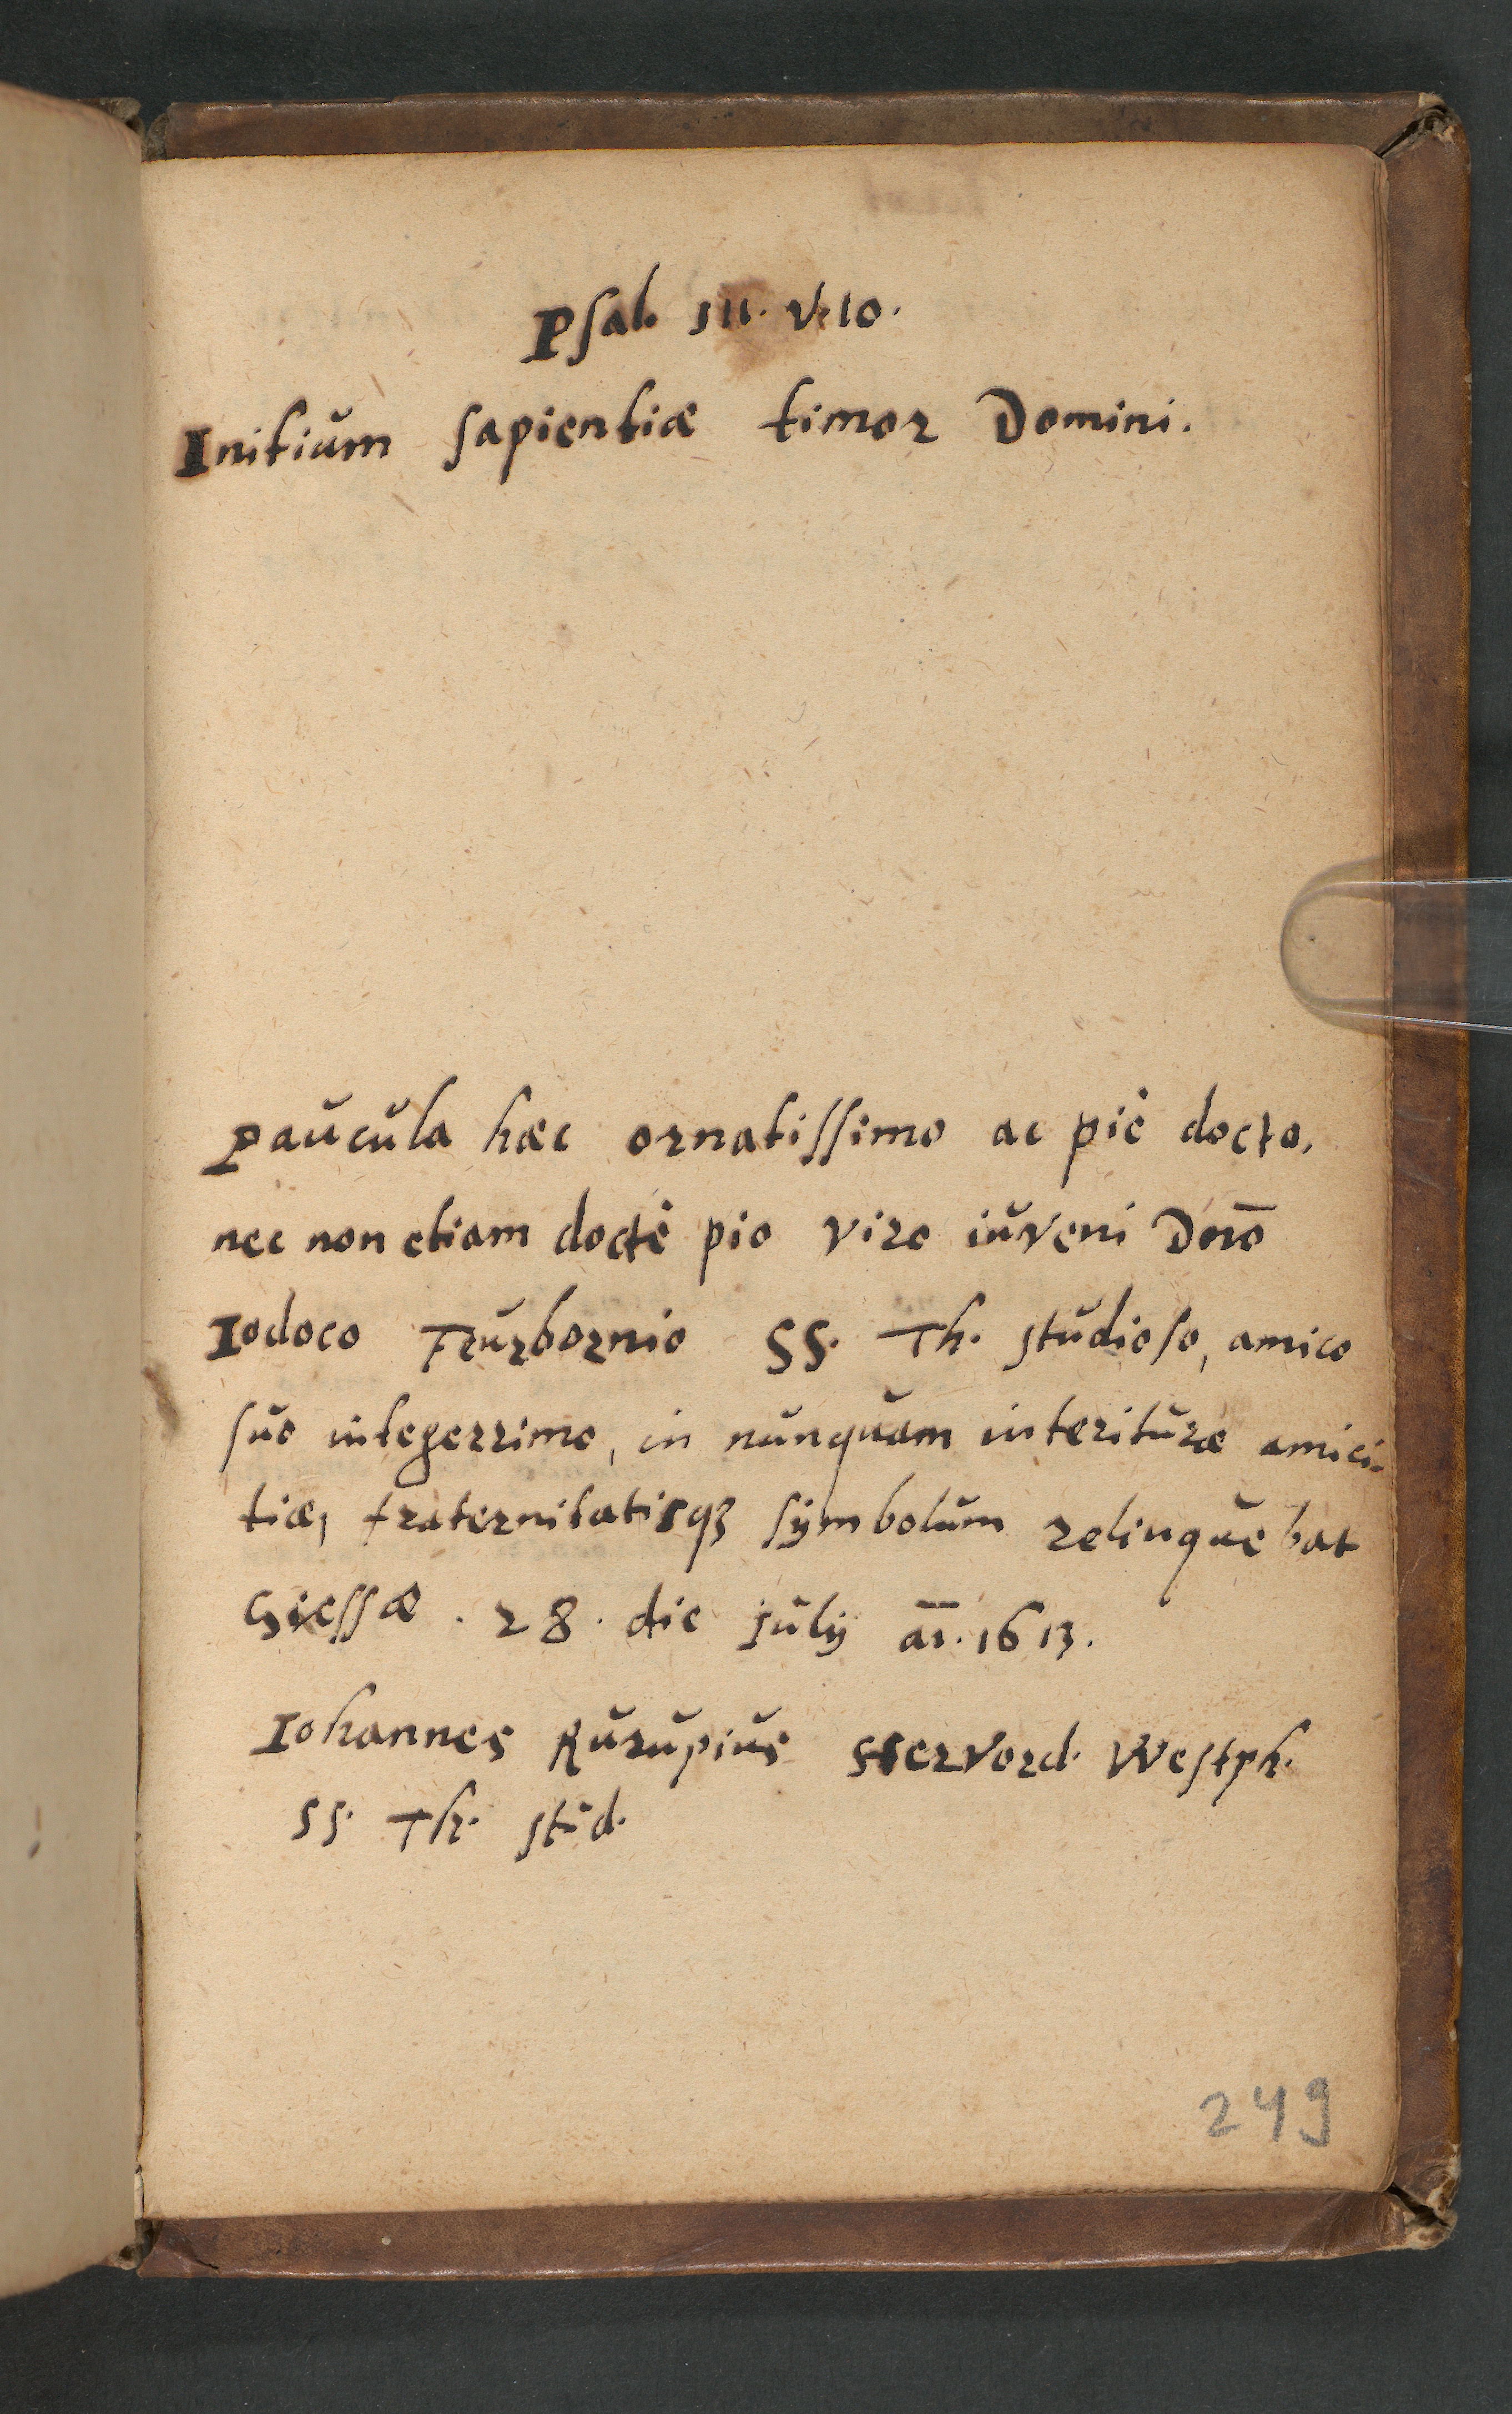 Psal. 111. v. 10.
Initium sapientiæ timor Domini.
Paucula hæc ornatissimo ac piè docto,
nec non etiam doctè pio viro iuveni Dn̄o
Iodoco Feurbornio SS. Th. studioso, amico
suo integerrimo, in nunquam interituræ amici-
tiæ, fraternitatisqꝫ symbolum relinquebat
Giessæ . 28. die Julÿ aō. 1613.
Iohannes Rurupius Hervord. Westph.
SS. Th. stud.
249